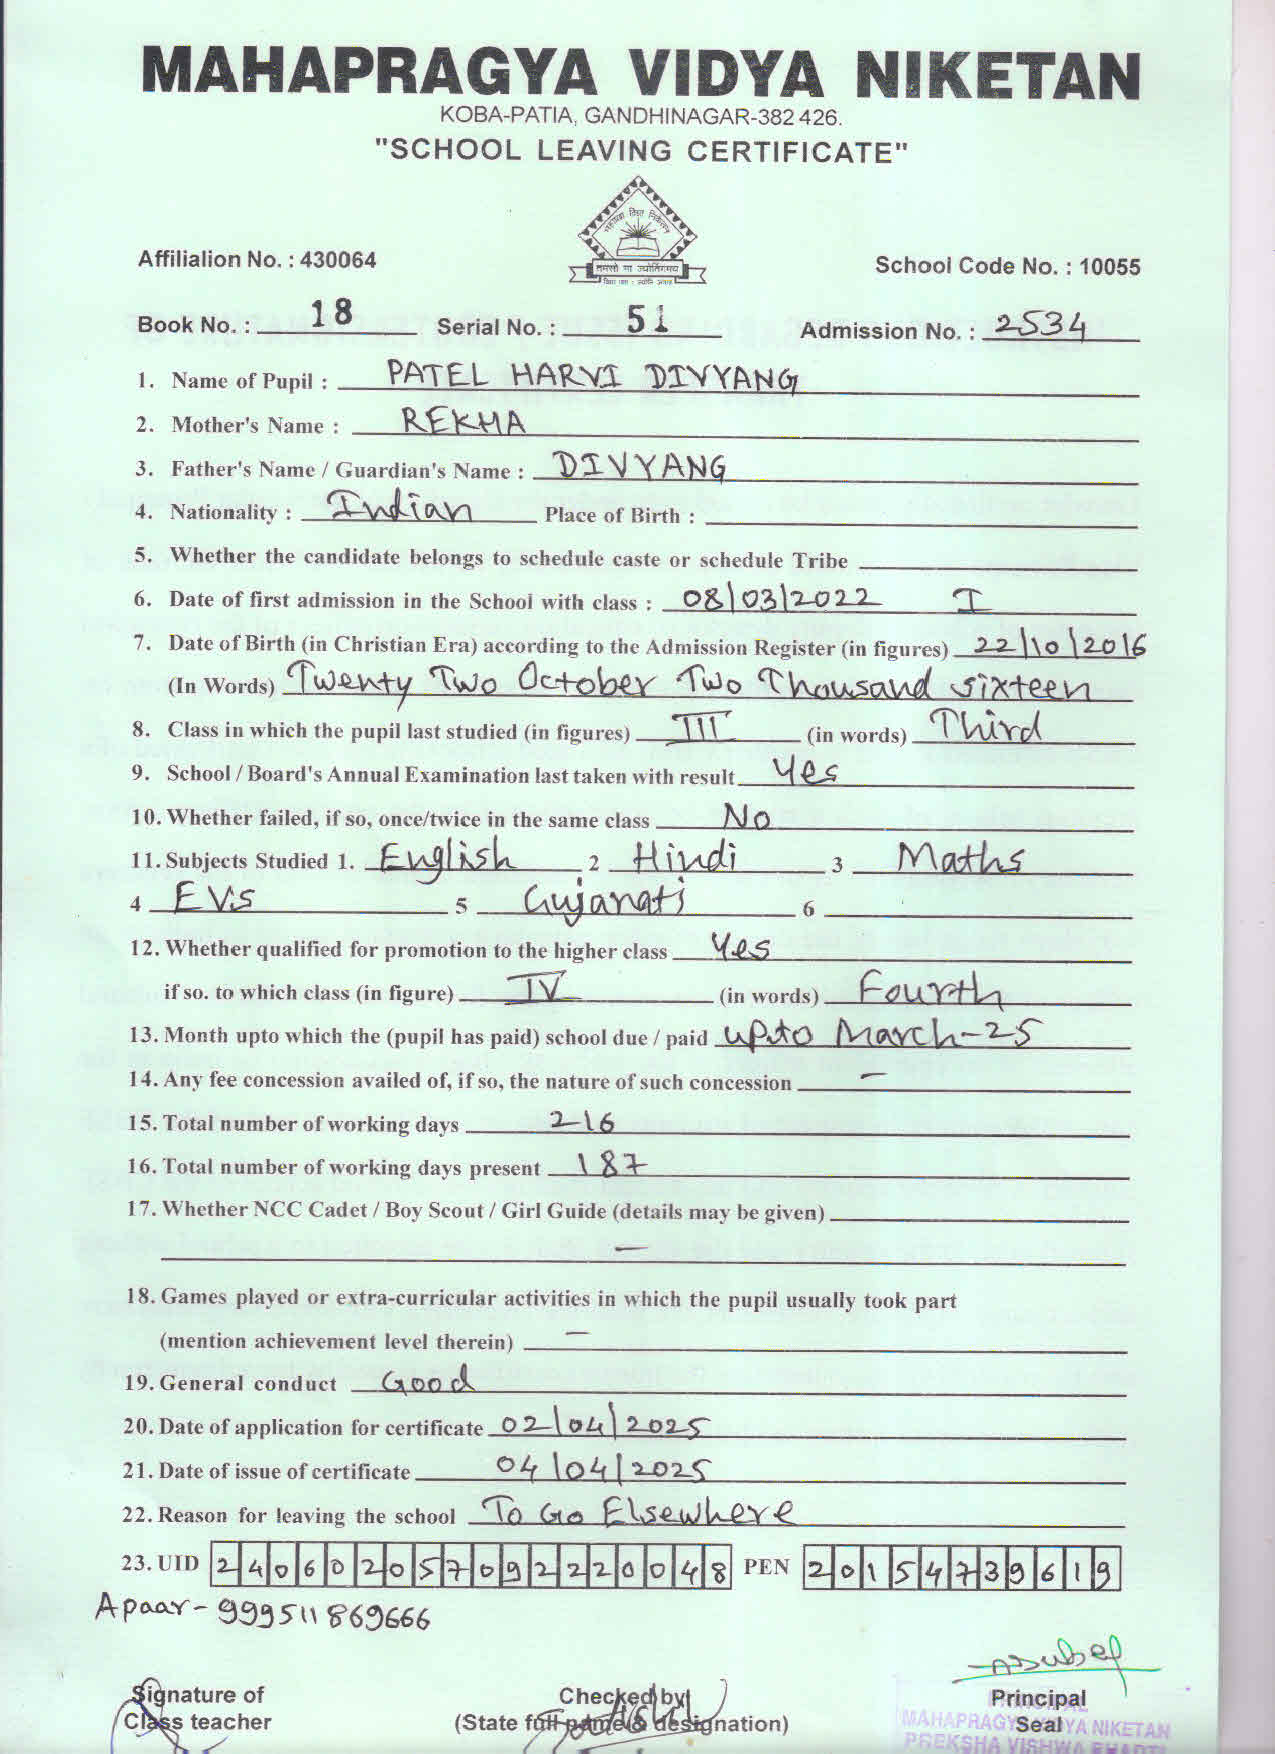 MAHAPRAGYA VIDYA NIKETAN
KOBA-PATIA, GANDHINAGAR-382 426.
"SCHOOL LEAVING CERTIFICATE"
महाप्रज्ञा विद्या निकेतन
तमसो मा ज्योतिर्गमय
Affilialion No. : 430064
School Code No. : 10055
Book No. : 18 Serial No. : 51 Admission No. : 2534
1. Name of Pupil : PATEL HARVI DIVYANG
2. Mother's Name : REKHA
3. Father's Name / Guardian's Name : DIVYANG
4. Nationality : Indian Place of Birth :
5. Whether the candidate belongs to schedule caste or schedule Tribe
6. Date of first admission in the School with class : 08/03/2022 I
7. Date of Birth (in Christian Era) according to the Admission Register (in figures) 22/10/2016
(In Words) Twenty Two October Two Thousand sixteen
8. Class in which the pupil last studied (in figures) III (in words) Third
9. School / Board's Annual Examination last taken with result Yes
10. Whether failed, if so, once/twice in the same class No
11. Subjects Studied 1. English 2 Hindi 3 Maths
4 EVS 5 Gujarati 6
12. Whether qualified for promotion to the higher class Yes
if so. to which class (in figure) IV (in words) Fourth
13. Month upto which the (pupil has paid) school due / paid upto March-25
14. Any fee concession availed of, if so, the nature of such concession —
15. Total number of working days 216
16. Total number of working days present 187
17. Whether NCC Cadet / Boy Scout / Girl Guide (details may be given)
—
18. Games played or extra-curricular activities in which the pupil usually took part
(mention achievement level therein) —
19. General conduct Good
20. Date of application for certificate 02/04/2025
21. Date of issue of certificate 04/04/2025
22. Reason for leaving the school To Go Elsewhere
23. UID 240602057092220048 PEN 20154739619
Apaar - 999511869666
Signature of
Class teacher
Checked by
(State full name & designation)
Principal
Seal
PRINCIPAL
MAHAPRAGYA VIDYA NIKETAN
PREKSHA VISHWA BHARTI